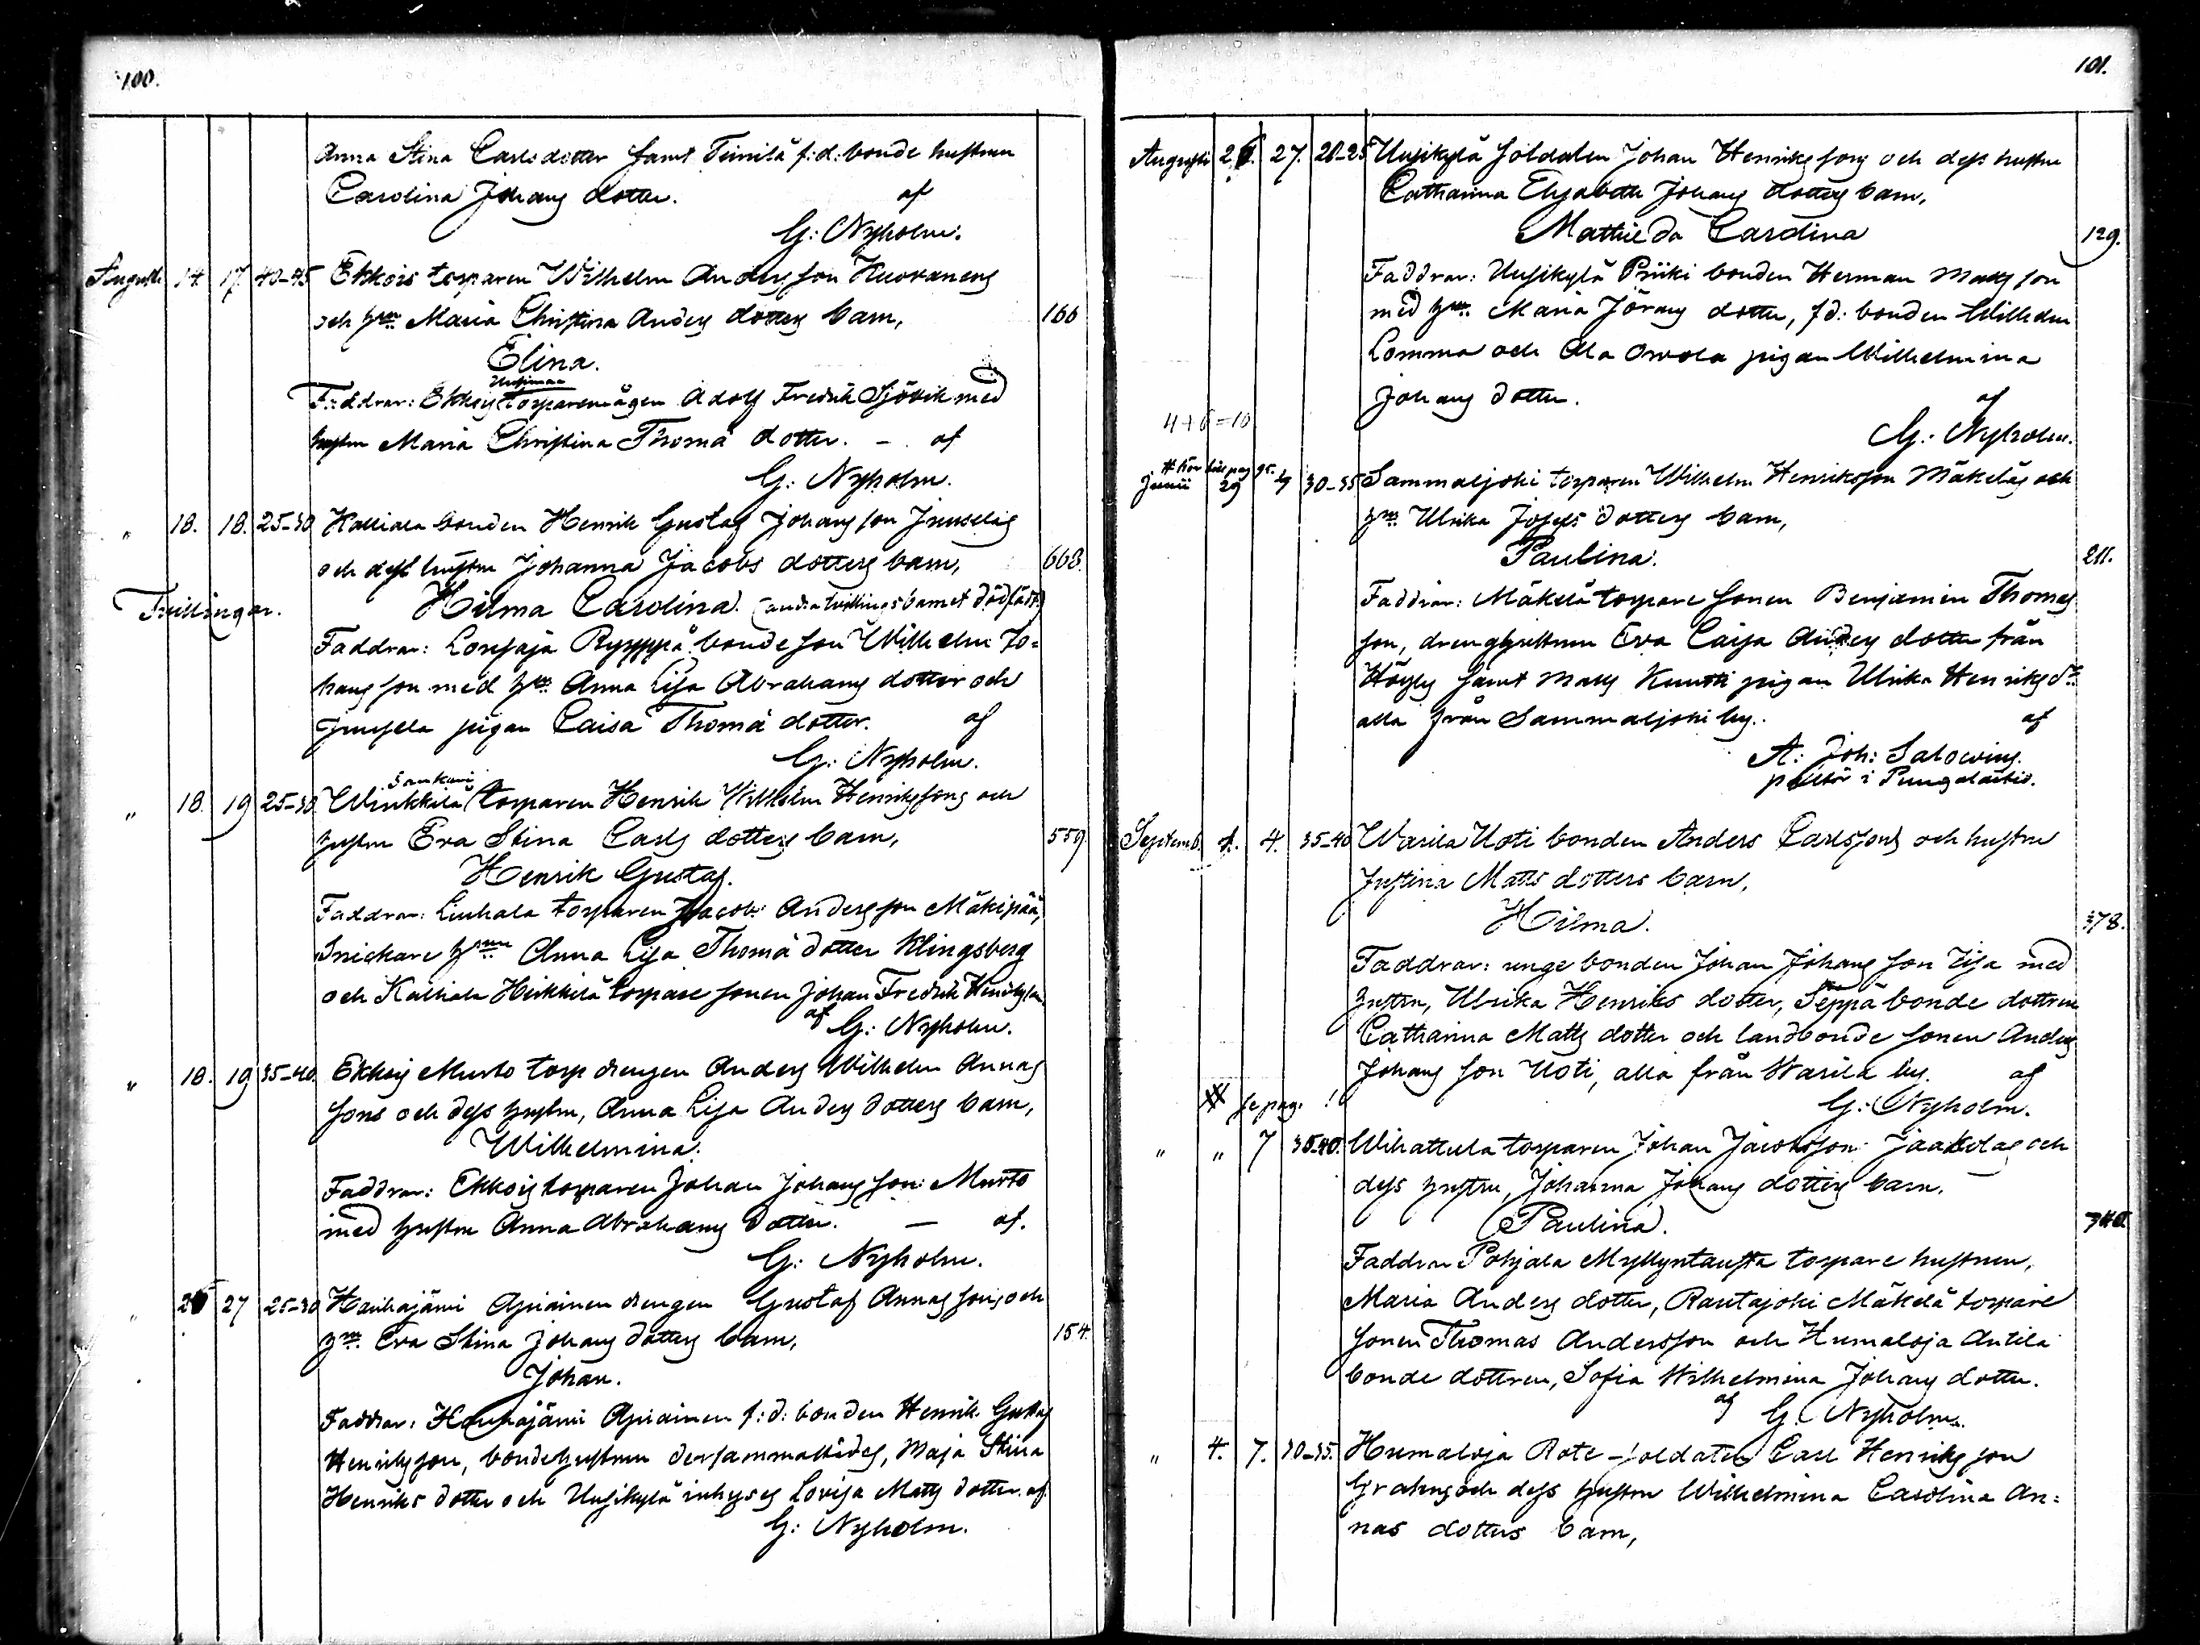 100.
Anna Stina Carlsdotter samt Teinilä f:d: bonde hustrun
Carolina Johans dotter. af
G: Nyholm.
Augusti 14 17 40-45 Ekkois torparen Wilhelm Anders son Kuovanens
och h:n Maria Christina Anders dotters barn, 166
Elina.
Uusimaa
Faddrar: Ekkois torparemågen Adolf Fredrik Sjövik med
hustru Maria Christina Thomä dotter. - af
G: Nyholm.
" 18. 18. 25-30 Kalliala bonden Henrik Gustaf Johans son
och dess hustru Johanna Jacobs dotters barn, 668.
Tvillingar. Hilma Carolina. (andra tvillingsbarnet dödfödt)
Faddrar: bonde son Wilhelm Jo=
hans son med h:n Anna Lisa Abrahams dotter och
pigan Caisa Thomä dotter. af
G: Nyholm.
Sankari
" 18. 19 25-30. torparen Henrik Wilhelm Henrikssons och
hustru Eva Stina Carls dotters barn, 559.
Henrik Gustaf.
Faddrar: Liuhala torparen Jacob Anders son Mäkipää,
Snickare h:un Anna Lisa Thomä dotter Klingsberg
och Kalliala Heikkilä torpare sonen Johan Fredrik
af G: Nyholm.
" 18. 19 35-40. Ekkois Murto torp drengen Anders Wilhelm Annas
sons och dess hustru, Anna Lisa Anders dotters barn,
Wilhelmina.
Faddrar: Ekkois torparen Johan Johans son Murto
med hustru Anna Abrahams dotter. — af.
G: Nyholm.
" 27 25-30 Hauhajärvi Apiainen drengen Gustaf Annas sons och
h:n Eva Stina Johans dotters barn, 154.
Johan.
Faddrar: Hauhajärvi Apiainen f:d: bonden Henrik Gustaf
Henriksson, bondehustrun dersammastädes, Maja Stina
Henriks dotter och Uusikylä inhyses Lovisa Matts dotter. af
G: Nyholm.
101.
Augusti 27. 20-25 Uusikylä soldaten Johan Henriks sons och dess hustru
Catharina Elisabeth Johans dotters barn,
Mathilda Carolina 129.
Faddrar: Uusikylä Priiki bonden Herman Matts son
med h:un Maria Jörans dotter, fd: bonden Wilhelm
Lomma och Ala pigan Wilhelmina
Johans dotter. af
4+6=10
G: Nyholm.
# hör till pag 95.
Junii 29 30-35 Sammaljoki torparen Wilhelm Henriksson Mäkeläs och
h:n Ulrika Josefs dotters barn,
Paulina. 211.
Faddrar: Mäkelä torpare sonen Benjamin Thomas
son, drenghustrun Eva Caisa Anders dotter från
samt Matts pigan Ulrika Henriks d:r
alla från Sammaljoki by. af
A: Joh: Salovius.
pastor i Pungalaitio.
Septemb. 4. 35-40 Warila Uoti bonden Anders Carlssons och hustru
Justina Matts dotters barn,
Hilma. 378.
Faddrar: unge bonden Johan Johans son med
hustru, Ulrika Henriks dotter, Seppä bonde dottren
Catharina Matts dotter och landbonde sonen Anders
Johans son Uoti, alla från Warila by. af
# se pag. ! G: Nyholm.
" " 7 35-40. Wihattula torparen Johan Jacobsson Jaakolas och
dess hustru, Johanna Johans dotters barn.
Paulina. 340.
Faddrar Pohjala torpare hustrun,
Maria Anders dotter, Rautajoki Mäkelä torpare
sonen Thomas Andersson och Humaloja Antila
bonde dottren, Sofia Wilhelmina Johans dotter.
af G. Nyholm.
" 4. 7. 30-35. Humaloja Rote-soldaten Carl Henriks son
Grahns och dess hustru Wilhelmina Carolina An=
nas dotters barn,